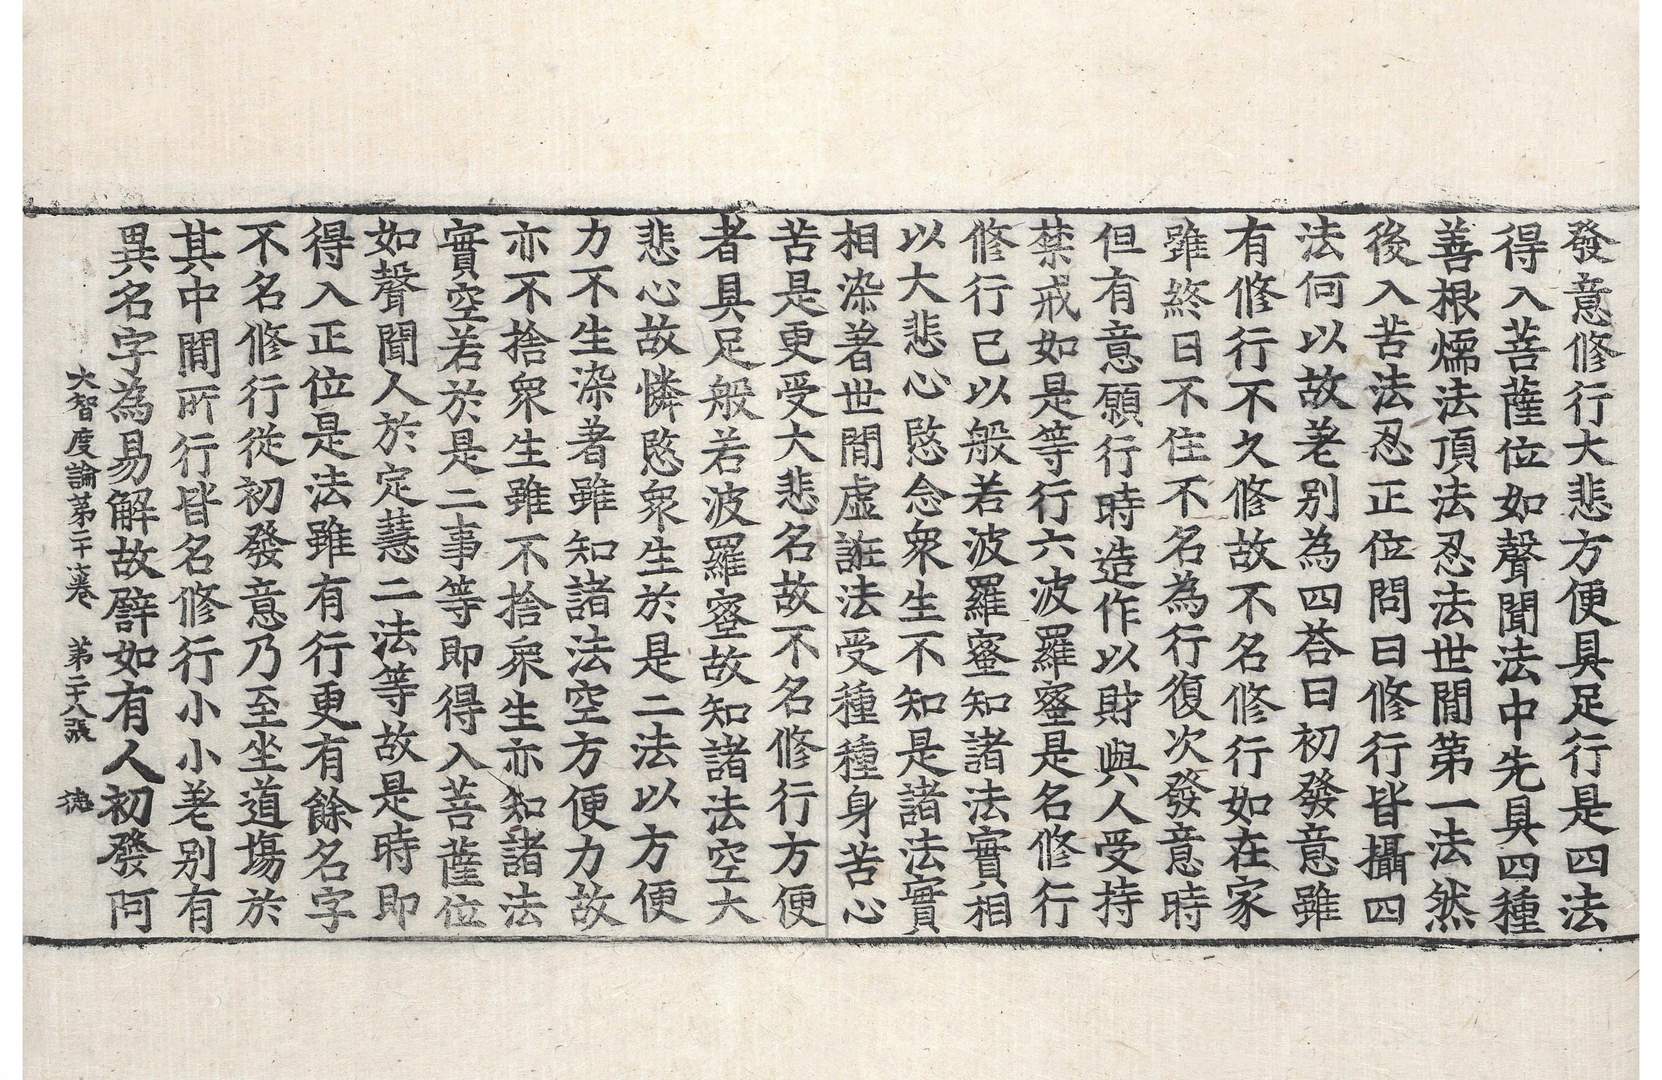 發意修行大悲方便具足行是四法
得入菩薩位如聲聞法中先具四種
善根煗法頂法忍法世閒第一法然
後入苦法忍正位問曰修行皆攝四
法何以故差别為四荅曰初發意雖
有修行不久修故不名修行如在家
雖終日不住不名為行復次發意時
但有意願行時造作以財與人受持
禁戒如是等行六波羅蜜是名修行
修行已以般若波羅蜜知諸法實相
以大悲心愍念衆生不知是諸法實
相染著世閒虛誑法受種種身苦心
苦是更受大悲名故不名修行方便
者具足般若波羅蜜故知諸法空大
悲心故憐愍衆生於是二法以方便
力不生染著雖知諸法空方便力故
亦不捨衆生雖不捨衆生亦知諸法
實空若於是二事等即得入菩薩位
如聲聞人於定慧二法等故是時即
得入正位是法雖有行更有餘名字
不名修行從初發意乃至坐道場於
其中閒所行皆名修行小小差别有
異名字為易解故譬如有人初發阿
大智度論第二十七卷 第二十八張 德